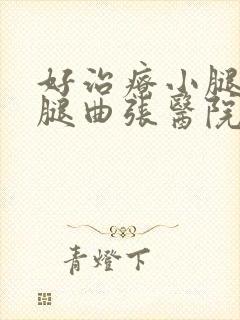 好治瘠小腿
腿曲张醫院
青燈下